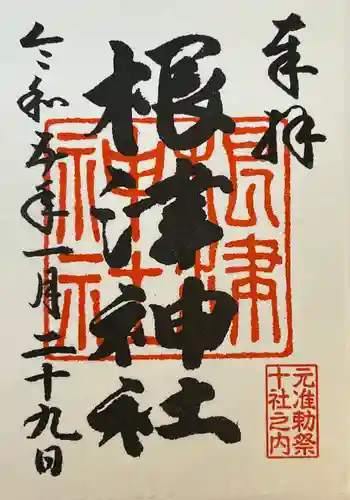 奉拝
根津神社
根津神社
元准勅祭
十社之内
令和五年一月二十九日